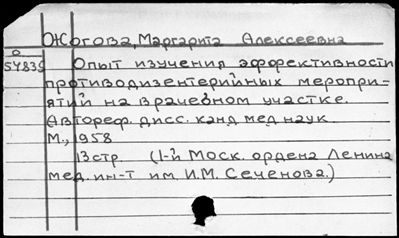 Жогова, Маргарита Алексеевна
О
57835
Опыт изучения эффективности
противодизентерийных меропри-
ятий на врачебном участке.
Автореф. дисс. канд мед наук
М., 1958
13стр (1-й Моск. ордена Ленина
мед. ин-т им. И.М. Сеченова.)